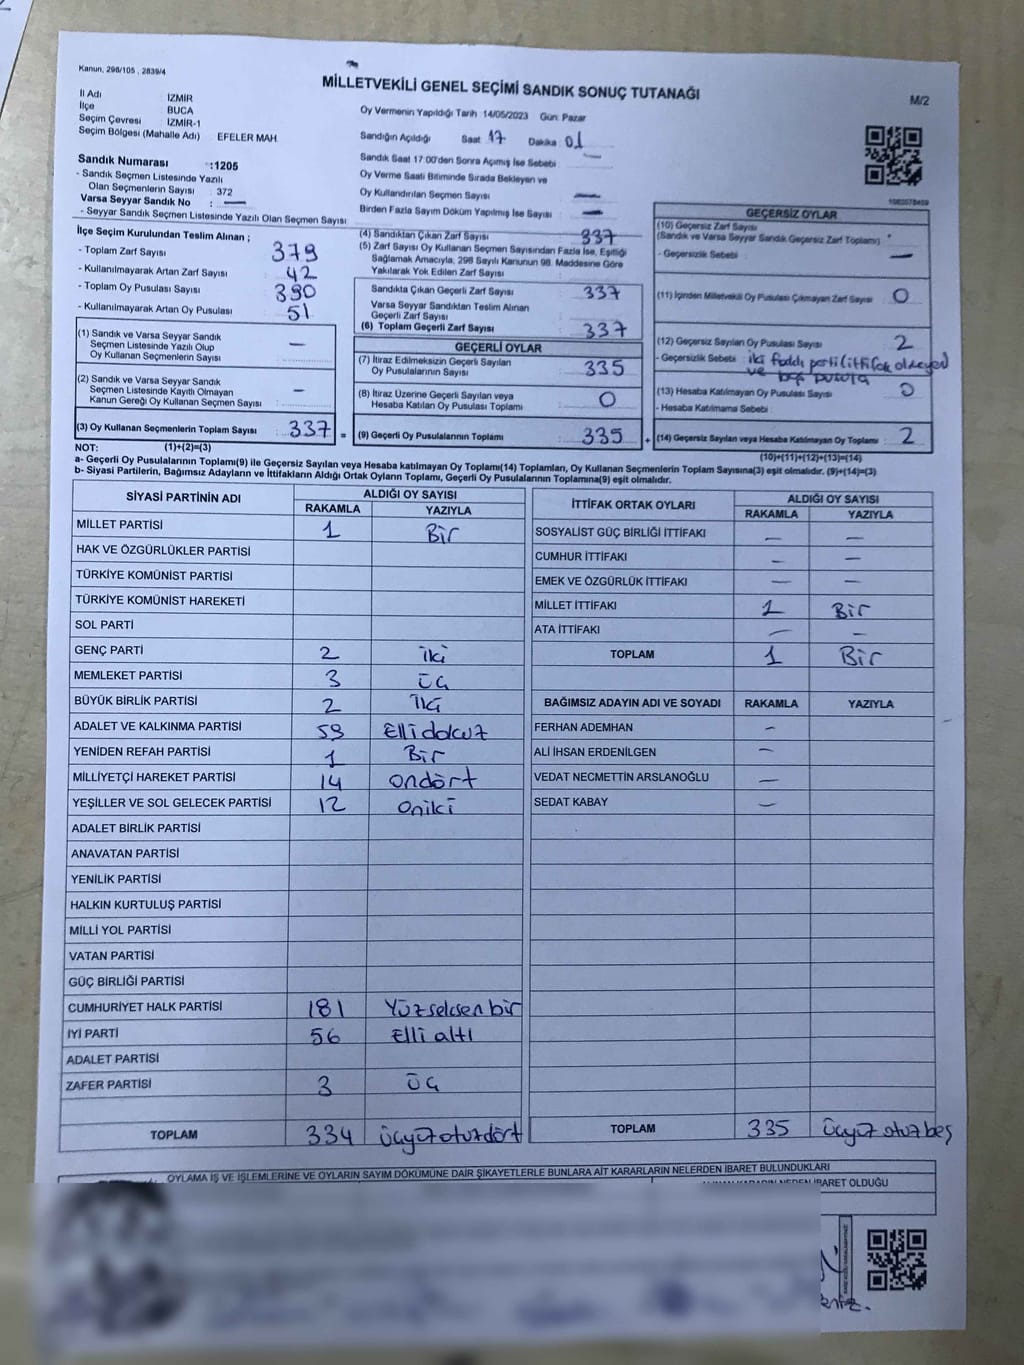 Kanun, 298/105 , 2839/4
MİLLETVEKİLİ GENEL SEÇİMİ SANDIK SONUÇ TUTANAĞI
M/2
İl Adı : İZMİR
İlçe : BUCA
Seçim Çevresi : İZMİR-1
Seçim Bölgesi (Mahalle Adı) : EFELER MAH
Sandık Numarası :1205
- Sandık Seçmen Listesinde Yazılı
Olan Seçmenlerin Sayısı : 372
Varsa Seyyar Sandık No : —
- Seyyar Sandık Seçmen Listesinde Yazılı Olan Seçmen Sayısı
Oy Vermenin Yapıldığı Tarih 14/05/2023 Gün: Pazar
Sandığın Açıldığı Saat 17 Dakika 01
Sandık Saat 17:00'den Sonra Açımış İse Sebebi —
Oy Verme Saati Bitiminde Sırada Bekleyen ve
Oy Kullandırılan Seçmen Sayısı —
Birden Fazla Sayım Döküm Yapılmış İse Sayısı —
İlçe Seçim Kurulundan Teslim Alınan ;
- Toplam Zarf Sayısı 379
- Kullanılmayarak Artan Zarf Sayısı 42
- Toplam Oy Pusulası Sayısı 390
- Kullanılmayarak Artan Oy Pusulası 51
(1) Sandık ve Varsa Seyyar Sandık
Seçmen Listesinde Yazılı Olup
Oy Kullanan Seçmenlerin Sayısı : —
(2) Sandık ve Varsa Seyyar Sandık
Seçmen Listesinde Kayıtlı Olmayan
Kanun Gereği Oy Kullanan Seçmen Sayısı : —
(3) Oy Kullanan Seçmenlerin Toplam Sayısı : 337 =
(4) Sandıktan Çıkan Zarf Sayısı 337
(5) Zarf Sayısı Oy Kullanan Seçmen Sayısından Fazla İse, Eşitliği
Sağlamak Amacıyla, 298 Sayılı Kanunun 98. Maddesine Göre
Yakılarak Yok Edilen Zarf Sayısı
Sandıkta Çıkan Geçerli Zarf Sayısı : 337
Varsa Seyyar Sandıktan Teslim Alınan
Geçerli Zarf Sayısı
(6) Toplam Geçerli Zarf Sayısı : 337
GEÇERLİ OYLAR
(7) İtiraz Edilmeksizin Geçerli Sayılan
Oy Pusulalarının Sayısı : 335
(8) İtiraz Üzerine Geçerli Sayılan veya
Hesaba Katılan Oy Pusulası Toplamı : 0
(9) Geçerli Oy Pusulalarının Toplamı : 335 +
1080578459
GEÇERSİZ OYLAR
(10) Geçersiz Zarf Sayısı
(Sandık ve Varsa Seyyar Sandık Geçersiz Zarf Toplamı)
- Geçersizlik Sebebi : —
(11) İçinden Milletvekili Oy Pusulası Çıkmayan Zarf Sayısı : 0
(12) Geçersiz Sayılan Oy Pusulası Sayısı : 2
- Geçersizlik Sebebi : iki farklı parti(ittifak olmayan)
ve boş pusula
(13) Hesaba Katılmayan Oy Pusulası Sayısı : 0
- Hesaba Katılmama Sebebi :
(14) Geçersiz Sayılan veya Hesaba Katılmayan Oy Toplamı : 2
NOT: (1)+(2)=(3) (10)+(11)+(12)+(13)=(14)
a- Geçerli Oy Pusulalarının Toplamı(9) ile Geçersiz Sayılan veya Hesaba katılmayan Oy Toplamı(14) Toplamları, Oy Kullanan Seçmenlerin Toplam Sayısına(3) eşit olmalıdır. (9)+(14)=(3)
b- Siyasi Partilerin, Bağımsız Adayların ve İttifakların Aldığı Ortak Oyların Toplamı, Geçerli Oy Pusulalarının Toplamına(9) eşit olmalıdır.
SİYASİ PARTİNİN ADI ALDIĞI OY SAYISI
RAKAMLA YAZIYLA
MİLLET PARTİSİ 1 Bir
HAK VE ÖZGÜRLÜKLER PARTİSİ
TÜRKİYE KOMÜNİST PARTİSİ
TÜRKİYE KOMÜNİST HAREKETİ
SOL PARTİ
GENÇ PARTİ 2 iki
MEMLEKET PARTİSİ 3 üç
BÜYÜK BİRLİK PARTİSİ 2 İki
ADALET VE KALKINMA PARTİSİ 59 Elli dokuz
YENİDEN REFAH PARTİSİ 1 Bir
MİLLİYETÇİ HAREKET PARTİSİ 14 ondört
YEŞİLLER VE SOL GELECEK PARTİSİ 12 Oniki
ADALET BİRLİK PARTİSİ
ANAVATAN PARTİSİ
YENİLİK PARTİSİ
HALKIN KURTULUŞ PARTİSİ
MİLLİ YOL PARTİSİ
VATAN PARTİSİ
GÜÇ BİRLİĞİ PARTİSİ
CUMHURİYET HALK PARTİSİ 181 Yüzseksen bir
İYİ PARTİ 56 Elli altı
ADALET PARTİSİ
ZAFER PARTİSİ 3 üç
TOPLAM 334 üçyüzotuzdört
İTTİFAK ORTAK OYLARI ALDIĞI OY SAYISI
RAKAMLA YAZIYLA
SOSYALİST GÜÇ BİRLİĞİ İTTİFAKI — —
CUMHUR İTTİFAKI — —
EMEK VE ÖZGÜRLÜK İTTİFAKI — —
MİLLET İTTİFAKI 1 Bir
ATA İTTİFAKI — —
TOPLAM 1 Bir
BAĞIMSIZ ADAYIN ADI VE SOYADI RAKAMLA YAZIYLA
FERHAN ADEMHAN —
ALİ İHSAN ERDENİLGEN —
VEDAT NECMETTİN ARSLANOĞLU —
SEDAT KABAY —
TOPLAM 335 üçyüz otuz beş
OYLAMA İŞ VE İŞLEMLERİNE VE OYLARIN SAYIM DÖKÜMÜNE DAİR ŞİKAYETLERLE BUNLARA AİT KARARLARIN NELERDEN İBARET BULUNDUKLARI
İBARET OLDUĞU